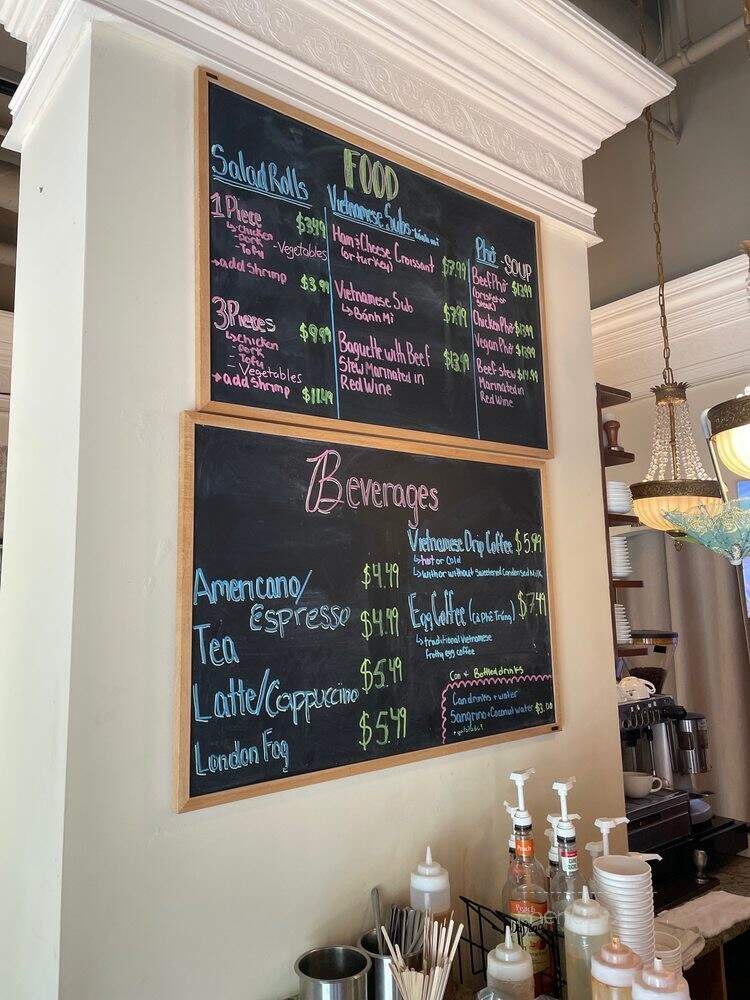 FOOD
Salad Rolls
1 Piece
↳ chicken
- Pork
- Tofu
- Vegetables
→ add shrimp
$3.99
3 Pieces
$9.99
↳ chicken
Pork
Tofu
- Vegetables
→ add shrimp
$11.49
Vietnamese Subs
Ham & Cheese Croissant
(or turkey)
$7.99
Vietnamese Sub
↳ Bánh Mì
$7.99
Baguette with Beef
Stew Marinated in
Red Wine
$13.49
Phở - SOUP
Beef Phở
Chicken Phở
Vegan Phở
Beef stew
Marinated in
Red Wine
Beverages
Americano/
Espresso
$4.49
Tea
$4.49
Latte/Cappuccino
$5.49
London Fog
$5.49
Vietnamese Drip Coffee $5.99
↳ hot or cold
↳ with or without sweetened Condensed Milk
Egg Coffee (Cà Phê Trứng) $7.49
↳ traditional Vietnamese
frothy egg coffee
Can + Bottled drinks
Can drinks + water
Sangrino + Coconut water $3.00
Peach
Peach